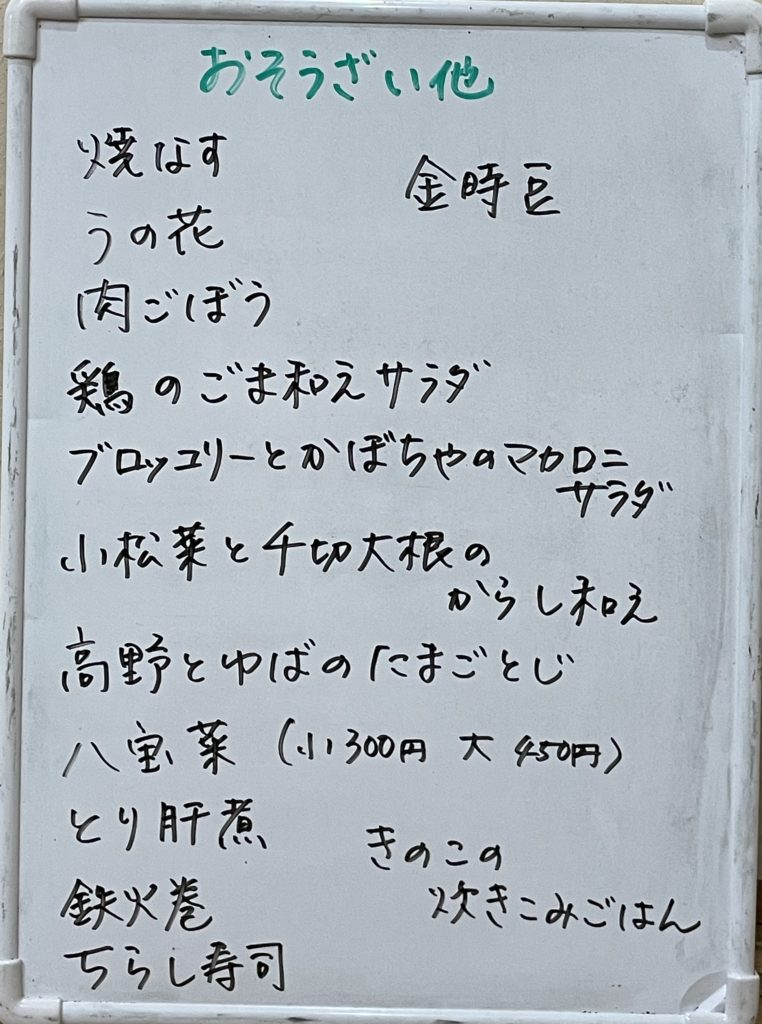 おそうざい他
焼なす
金時豆
うの花
肉ごぼう
鶏のごま和えサラダ
ブロッコリーとかぼちゃのマカロニ
サラダ
小松菜と千切大根の
からし和え
高野とゆばのたまごとじ
八宝菜 (小300円 大450円)
とり肝煮
きのこの
炊きこみごはん
鉄火巻
ちらし寿司